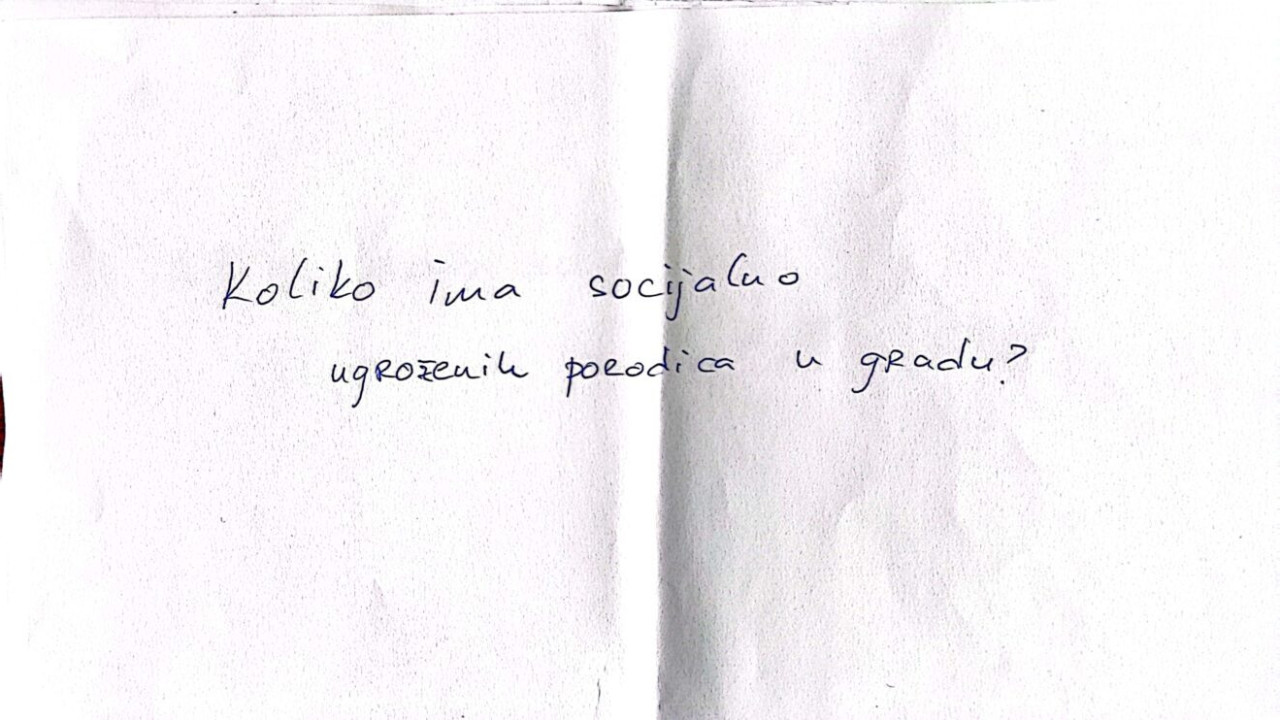 Koliko ima socijalno
ugroženih porodica u gradu?